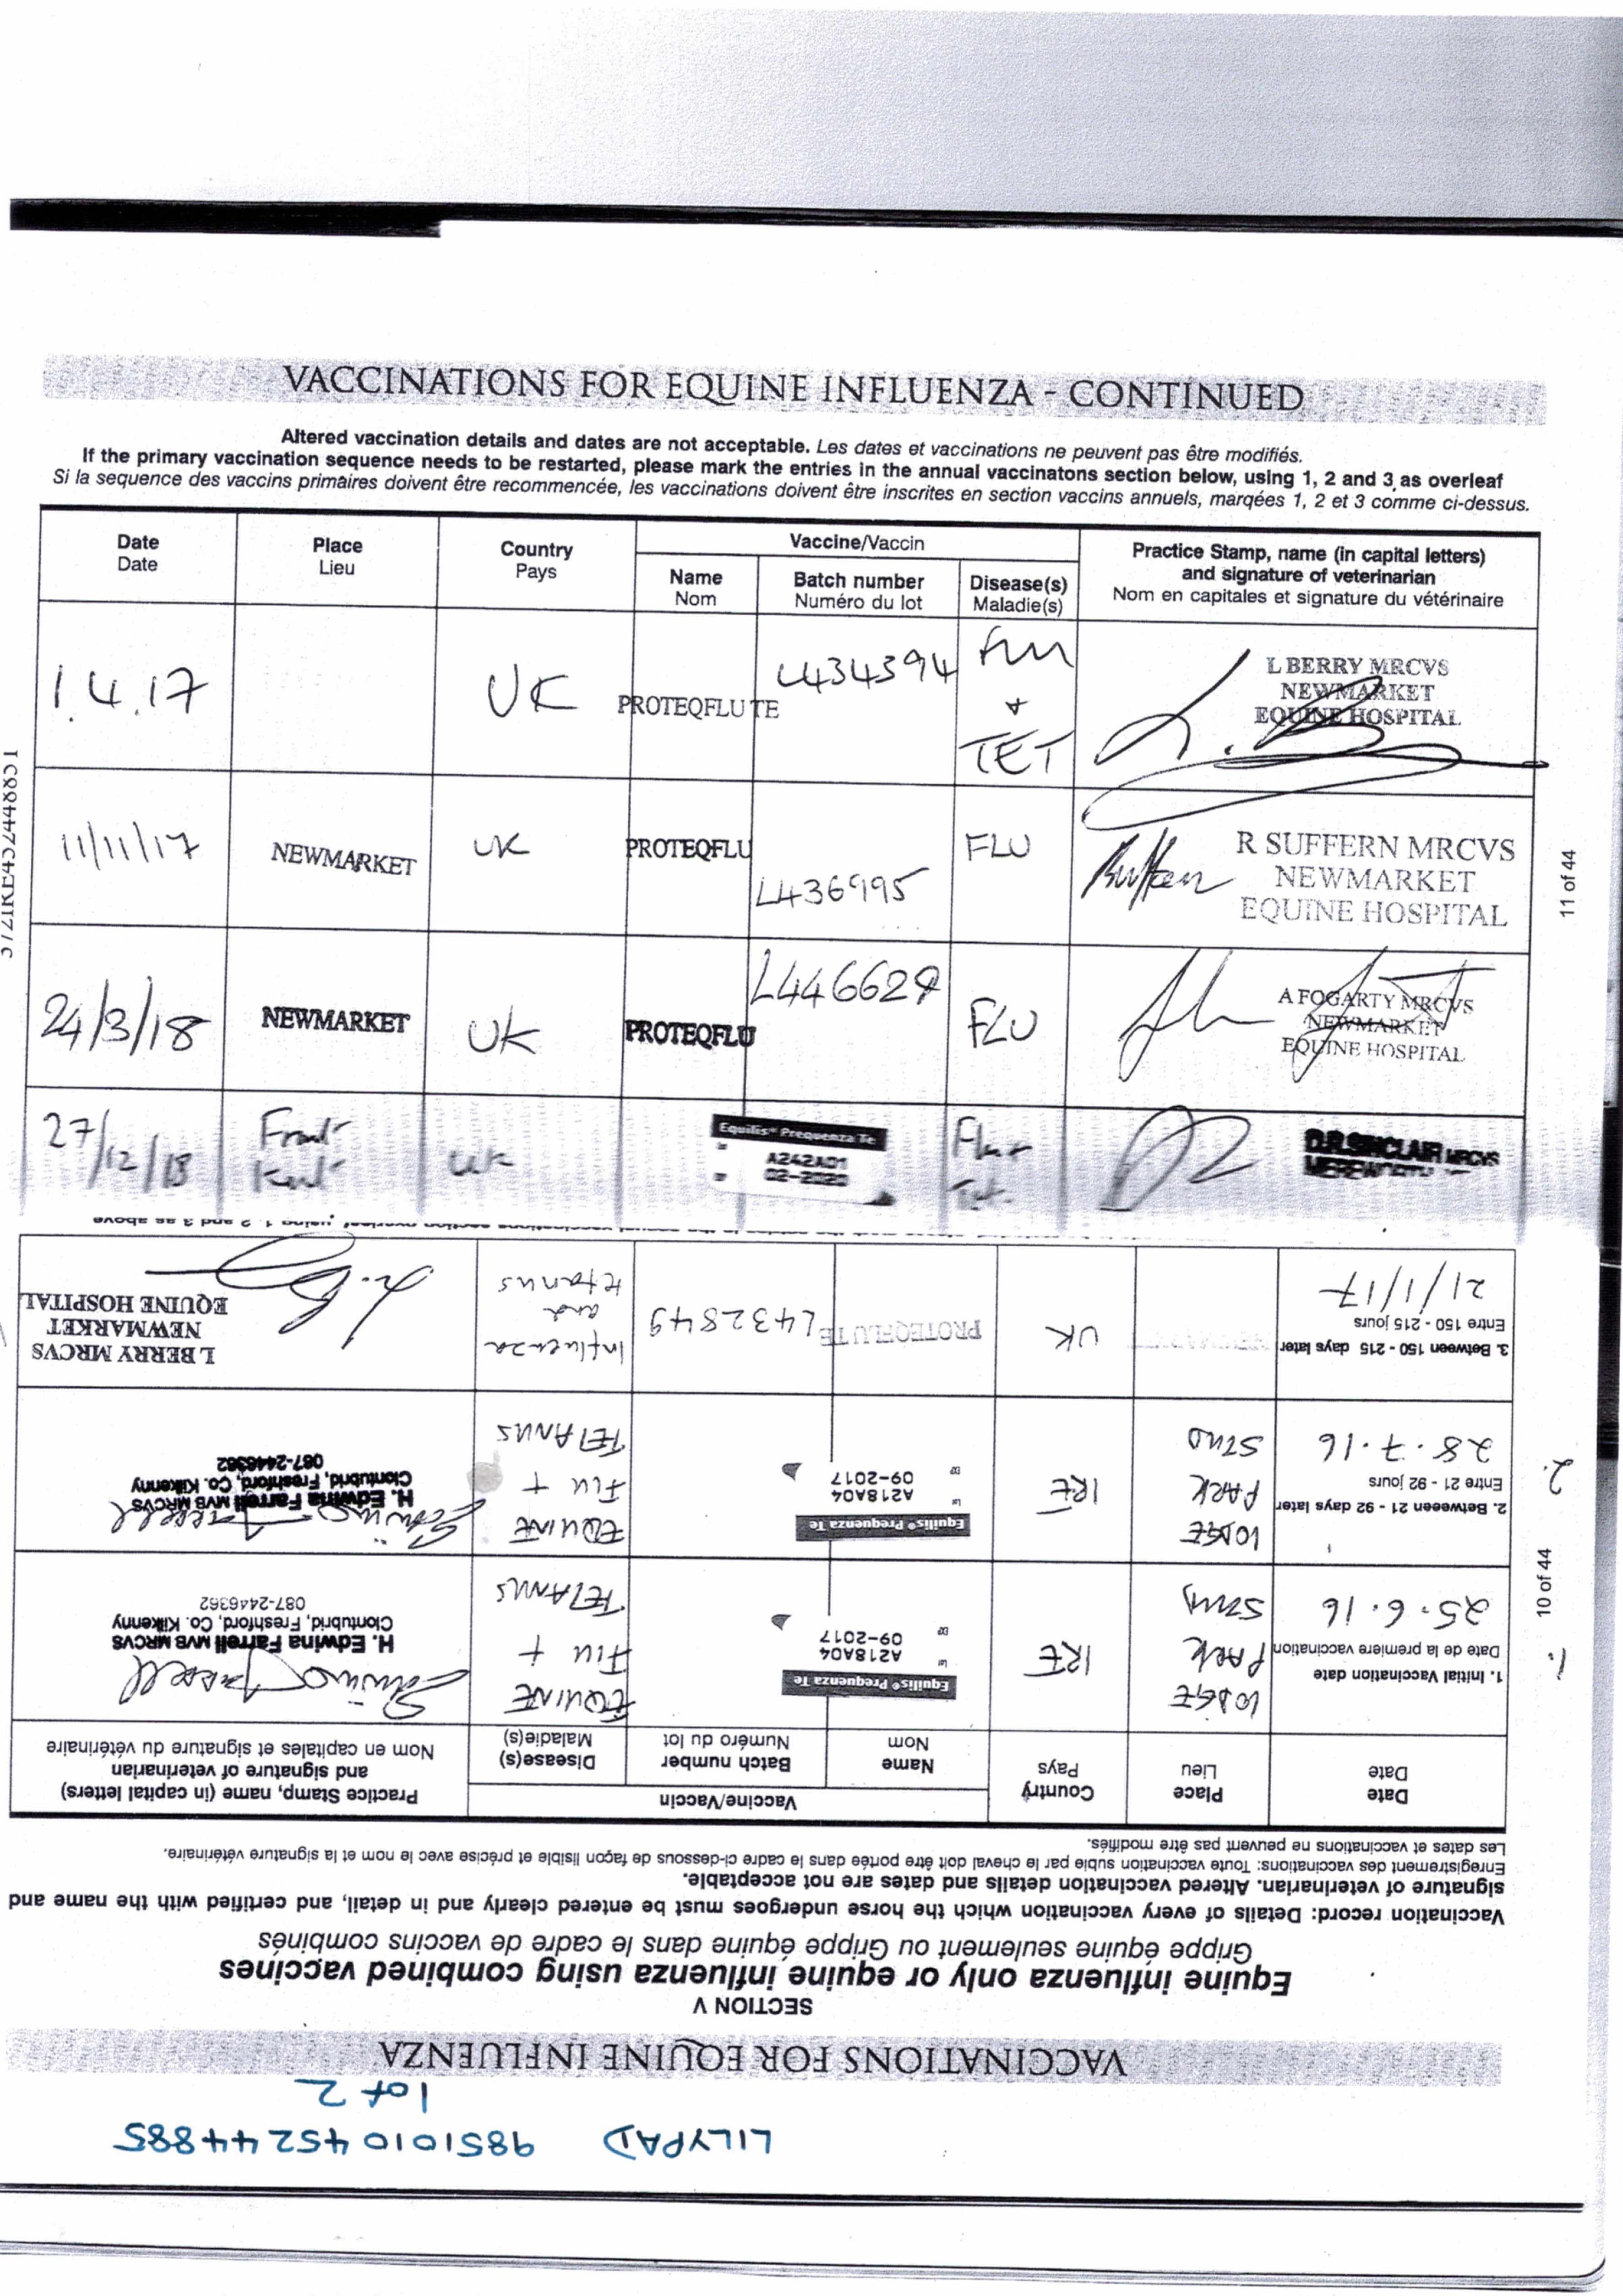 VACCINATIONS FOR EQUINE INFLUENZA - CONTINUED
Altered vaccination details and dates are not acceptable. Les dates et vaccinations ne peuvent pas être modifiés.
If the primary vaccination sequence needs to be restarted, please mark the entries in the annual vaccinatons section below, using 1, 2 and 3, as overleaf
Si la sequence des vaccins primaires doivent être recommencée, les vaccinations doivent être inscrites en section vaccins annuels, marqées 1, 2 et 3 comme ci-dessus.
Date
Date
Place
Lieu
Country
Pays
Vaccine/Vaccin
Name
Nom
Batch number
Numéro du lot
Disease(s)
Maladie(s)
Practice Stamp, name (in capital letters)
and signature of veterinarian
Nom en capitales et signature du vétérinaire
1.4.17
UK
PROTEQFLU TE
L434394
Flu
+
TET
L BERRY MRCVS
NEWMARKET
EQUINE HOSPITAL
11/11/17
NEWMARKET
UK
PROTEQFLU
L436995
FLU
R SUFFERN MRCVS
NEWMARKET
EQUINE HOSPITAL
24/3/18
NEWMARKET
UK
PROTEQFLU
L446629
FLU
A FOGARTY MRCVS
NEWMARKET
EQUINE HOSPITAL
27/12/18
Kent
UK
Equilis® Prequenza Te
A242A01
02-2020
Flu +
Tet.
D.R.SINCLAIR MRCVS
11 of 44
LILYPAD 985101045244885
1 of 2
VACCINATIONS FOR EQUINE INFLUENZA
SECTION V
Equine influenza only or equine influenza using combined vaccines
Grippe équine seulement ou Grippe équine dans le cadre de vaccins combinés
Vaccination record: Details of every vaccination which the horse undergoes must be entered clearly and in detail, and certified with the name and
signature of veterinarian. Altered vaccination details and dates are not acceptable.
Enregistrement des vaccinations: Toute vaccination subie par le cheval doit être portée dans le cadre ci-dessous de façon lisible et précise avec le nom et la signature vétérinaire.
Les dates et vaccinations ne peuvent pas être modifiés.
Date
Date
Place
Lieu
Country
Pays
Vaccine/Vaccin
Name
Nom
Batch number
Numéro du lot
Disease(s)
Maladie(s)
Practice Stamp, name (in capital letters)
and signature of veterinarian
Nom en capitales et signature du vétérinaire
1.
1. Initial Vaccination date
Date de la premiere vaccination
25.6.16
LODGE
PARK
STUD
IRE
Equilis® Prequenza Te
A218A04
09-2017
EQUINE
FLU +
TETANUS
Edwina Farrell
H. Edwina Farrell MVB MRCVS
Clontubrid, Freshford, Co. Kilkenny
087-2446362
2.
2. Betweeen 21 - 92 days later
Entre 21 - 92 jours
28.7.16
LODGE
PARK
STUD
IRE
Equilis® Prequenza Te
A218A04
09-2017
EQUINE
FLU +
TETANUS
Edwina Farrell
H. Edwina Farrell MVB MRCVS
Clontubrid, Freshford, Co. Kilkenny
087-2446362
3. Between 150 - 215 days later
Entre 150 - 215 jours
21/1/17
UK
PROTEQFLUTE
L432849
Influenza
and
tetanus
L BERRY MRCVS
NEWMARKET
EQUINE HOSPITAL
10 of 44